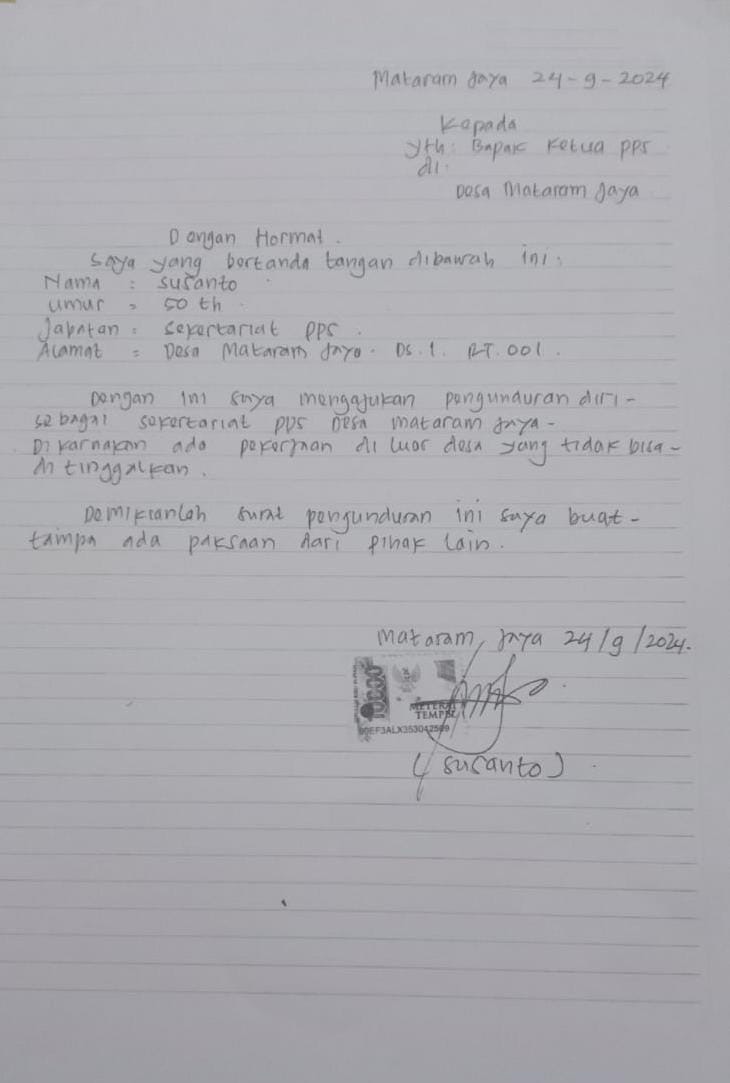 Mataram Jaya 24-9-2024
Kepada
Yth: Bapak Ketua PPS
di.
Desa Mataram Jaya
Dengan Hormat.
Saya yang bertanda tangan dibawah ini:
Nama : Susanto
Umur = 50 th
Jabatan = Sekertariat PPS.
Alamat = Desa Mataram Jaya. Ds.1. RT.001.
Dengan ini saya mengajukan pengunduran diri-
sebagai sekertariat PPS Desa Mataram Jaya-
Dikarnakan ada pekerjaan di luar desa yang tidak bisa-
di tinggalkan.
Demikianlah surat pengunduran ini saya buat-
tampa ada paksaan dari pihak lain.
Mataram, Jaya 24/9/2024.
10000
METERAI
TEMPEL
(Susanto)